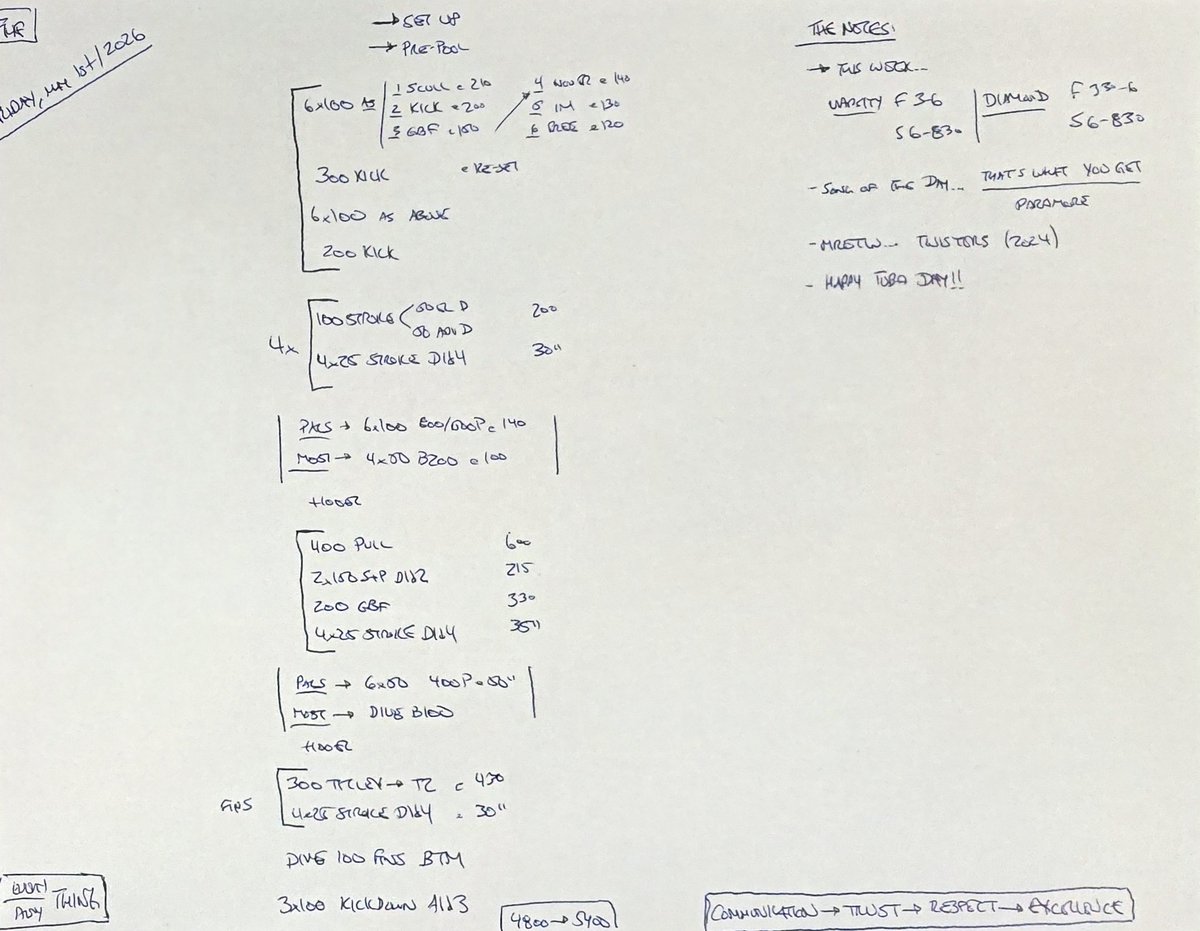 → SET UP
→ PRE-POOL
6x100 AS
1 SCULL @ 210
2 KICK @ 200
3 GBF @ 150
4 @ 140
5 IM @ 130
6 FREE @ 120
300 KICK @ RE-SET
6x100 AS ABOVE
200 KICK
4x
100 STROKE 50 EZ D 200
50 D
4x25 STROKE D1d4 30"
PACS → 6x100 500/500P @ 140
MOST → 4x50 B200 @ 100
+100EZ
400 PULL 600
2x150 S+P D1d2 215
200 GBF 330
4x25 STROKE D1d4 35"
PACS → 6x50 400P @ 50"
MOST → DIVE B100
+100EZ
FINS
300 → T2 @ 430
4x25 STROKE D1d4 @ 30"
DIVE 100 FINS BTM
3x100 KICKDOWN A1d3
4800 → 5400
THE NOTES:
→ THIS WEEK...
VARSITY F 3-6
S 6-830
DIAMOND F 330-6
S 6-830
- SONG OF THE DAY... THAT'S WHAT YOU GET
PARAMORE
- MRETW... TWISTERS (2024)
- HAPPY TUBA DAY!!
THING
COMMUNICATION → TRUST → RESPECT → EXCELLENCE